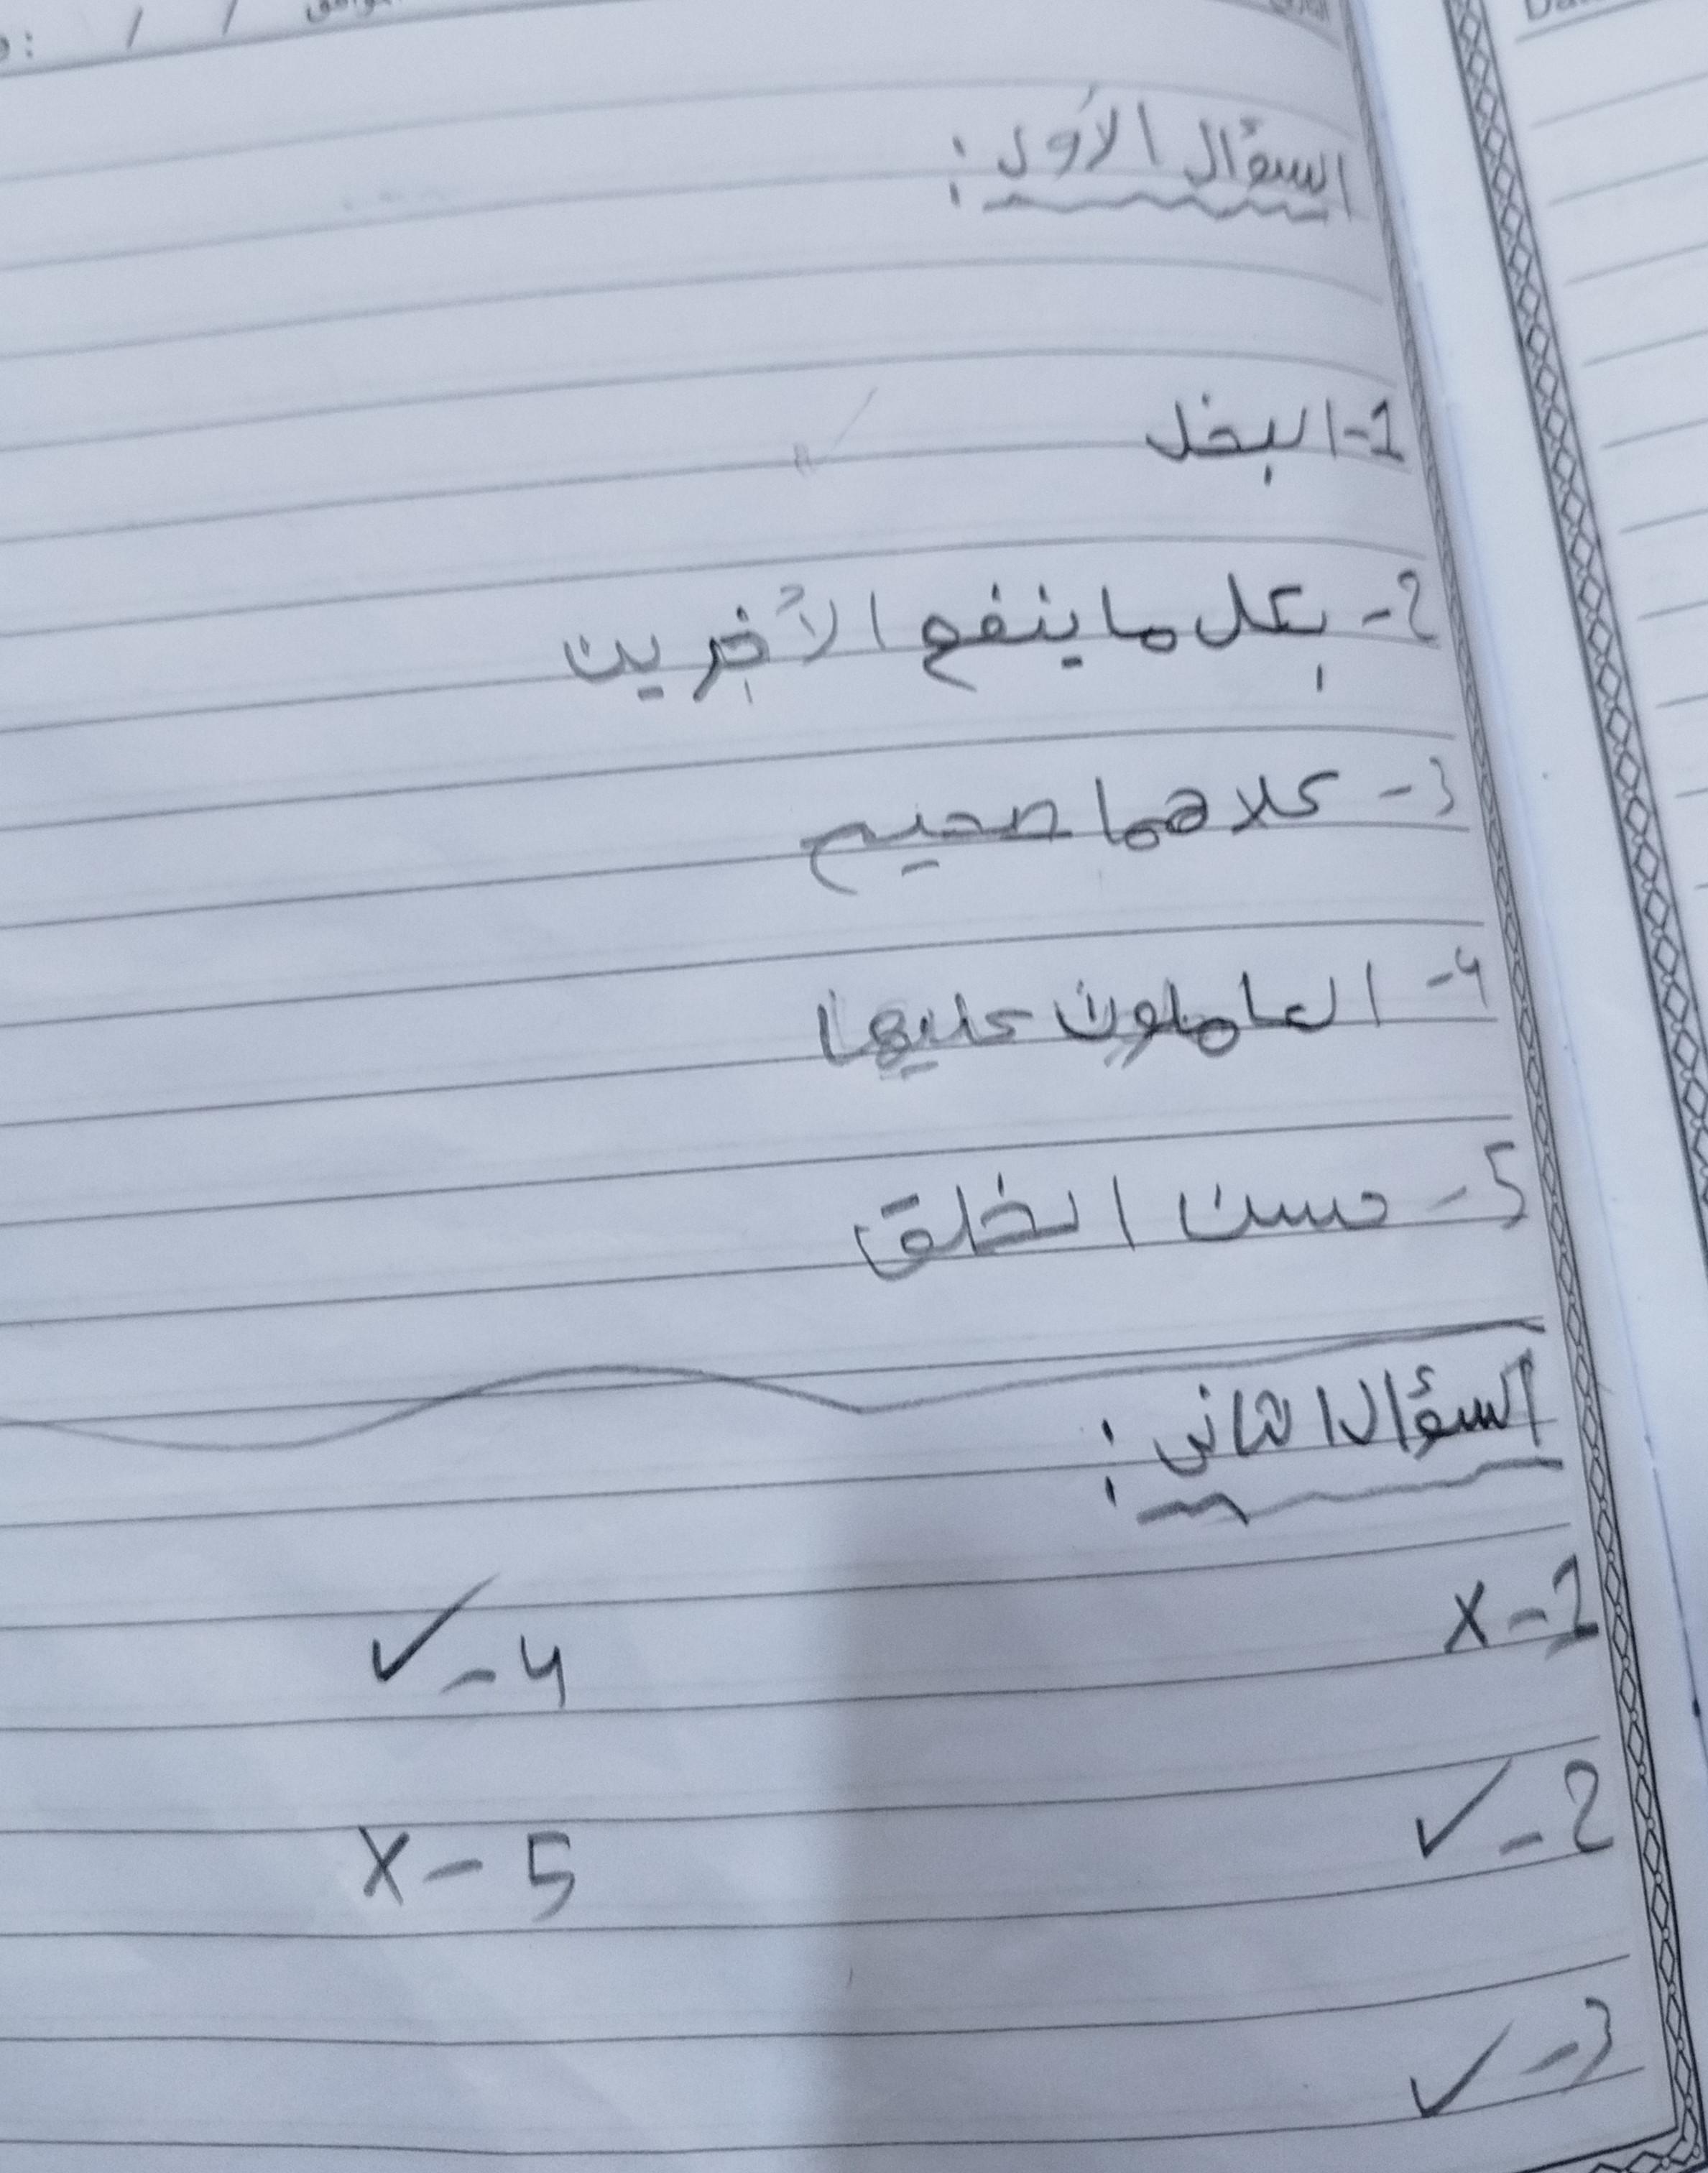 السؤال الأول:
1- البخل
2- بكل ما ينفع الآخرين
3- كلاهما صحيح
4- العاملون عليها
5- حسن الخلق
السؤال الثاني:
1- x
4- ✓
2- ✓
5- x
3- ✓